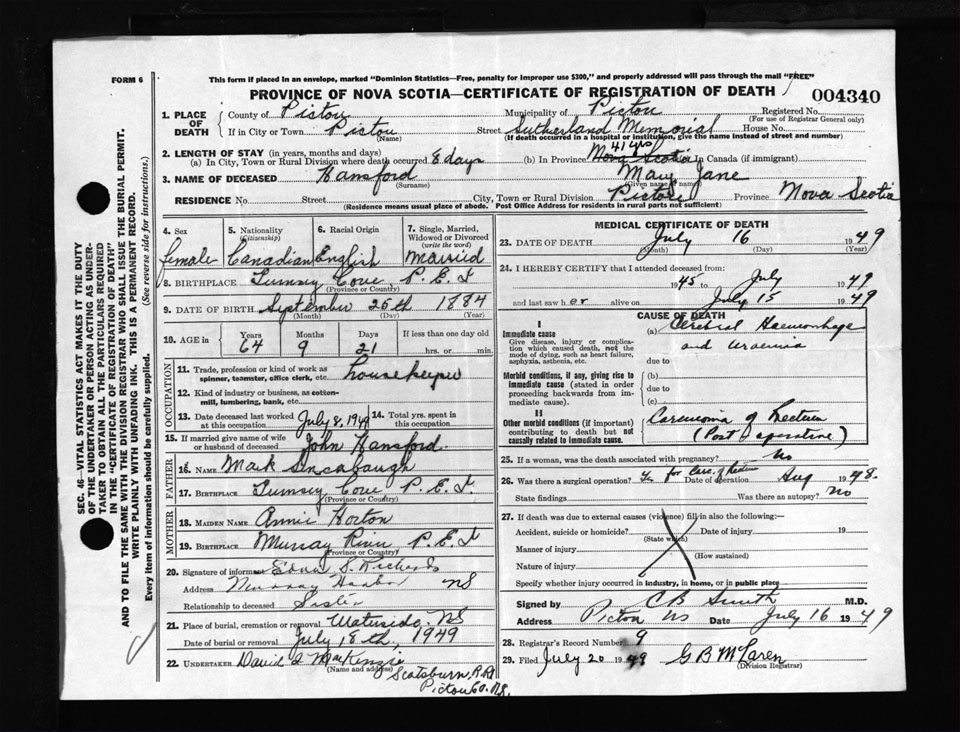 FORM 6
This form if placed in an envelope, marked "Dominion Statistics—Free, penalty for improper use $300," and properly addressed will pass through the mail "FREE"
PROVINCE OF NOVA SCOTIA—CERTIFICATE OF REGISTRATION OF DEATH
004340
1. PLACE OF DEATH
County of Pictou Municipality of Pictou Registered No.
(For use of Registrar General only)
If in City or Town Pictou Street Sutherland Memorial House No.
(Name) (If death occurred in a hospital or institution, give the name instead of street and number)
2. LENGTH OF STAY (in years, months and days)
41 yrs
(a) In City, Town or Rural Division where death occurred 8 days (b) In Province Nova Scotia In Canada (if immigrant)
3. NAME OF DECEASED Hansford Mary Jane
(Surname) (Given name or names)
RESIDENCE No. Street City, Town or Rural Division Pictou Province Nova Scotia
(Residence means usual place of abode. Post Office Address for residents in rural parts not sufficient)
4. Sex 5. Nationality (Citizenship) 6. Racial Origin 7. Single, Married, Widowed or Divorced (write the word)
female Canadian English Married
8. BIRTHPLACE Cove P.E.I
(Province or Country)
9. DATE OF BIRTH September 25th 1884
(Month) (Day) (Year)
10. AGE in Years Months Days If less than one day old
64 9 21 hrs. or min.
OCCUPATION
11. Trade, profession or kind of work as spinner, teamster, office clerk, etc. housekeeper
12. Kind of industry or business, as cotton-mill, lumbering, bank, etc.
13. Date deceased last worked at this occupation July 8, 1949 14. Total yrs. spent in this occupation
15. If married give name of wife or husband of deceased John Hansford
FATHER
16. NAME Mark
17. BIRTHPLACE Cove P.E.I.
(Province or Country)
MOTHER
18. MAIDEN NAME Annie Horton
19. BIRTHPLACE Murray River P.E.I
(Province or Country)
20. Signature of informant Edna S. Richards
Address Murray Harbor NS
Relationship to deceased Sister
21. Place of burial, cremation or removal Waterside, NS
Date of burial or removal July 18th, 1949
22. UNDERTAKER David MacKenzie
Scotsburn, R.R.1
Pictou Co. N.S.
MEDICAL CERTIFICATE OF DEATH
23. DATE OF DEATH July 16 1949
(Month) (Day) (Year)
24. I HEREBY CERTIFY that I attended deceased from:
1945 to July 1949
and last saw her alive on July 15 1949
CAUSE OF DEATH
I
Immediate cause
Give disease, injury or complication which caused death, not the mode of dying, such as heart failure, asphyxia, asthenia, etc.
(a) Cerebral Haemorrhage
and uraemia
due to
Morbid conditions, if any, giving rise to immediate cause (stated in order proceeding backwards from immediate cause).
(b)
due to
(c)
II
Other morbid conditions (if important) contributing to death but not causally related to immediate cause.
Carcinoma of Rectum
(Post operative)
25. If a woman, was the death associated with pregnancy? No
26. Was there a surgical operation? Yes for Carc. of Rectum Date of operation Aug 1948.
State findings Was there an autopsy? no
27. If death was due to external causes (violence) fill in also the following:
Accident, suicide or homicide? Date of injury 19
(State which)
Manner of injury
(How sustained)
Nature of injury
Specify whether injury occurred in industry, in home, or in public place
Signed by C B Smith M.D.
Address Pictou NS Date July 16 1949
28. Registrar's Record Number 9
29. Filed July 20 1949 G B McLaren
(Division Registrar)
SEC. 46—VITAL STATISTICS ACT MAKES IT THE DUTY OF THE UNDERTAKER OR PERSON ACTING AS UNDERTAKER TO OBTAIN ALL THE PARTICULARS REQUIRED IN THE "CERTIFICATE OF REGISTRATION OF DEATH" AND TO FILE THE SAME WITH THE DIVISION REGISTRAR WHO SHALL ISSUE THE BURIAL PERMIT.
WRITE PLAINLY WITH UNFADING INK. THIS IS A PERMANENT RECORD.
Every item of information should be carefully supplied. (See reverse side for instructions.)